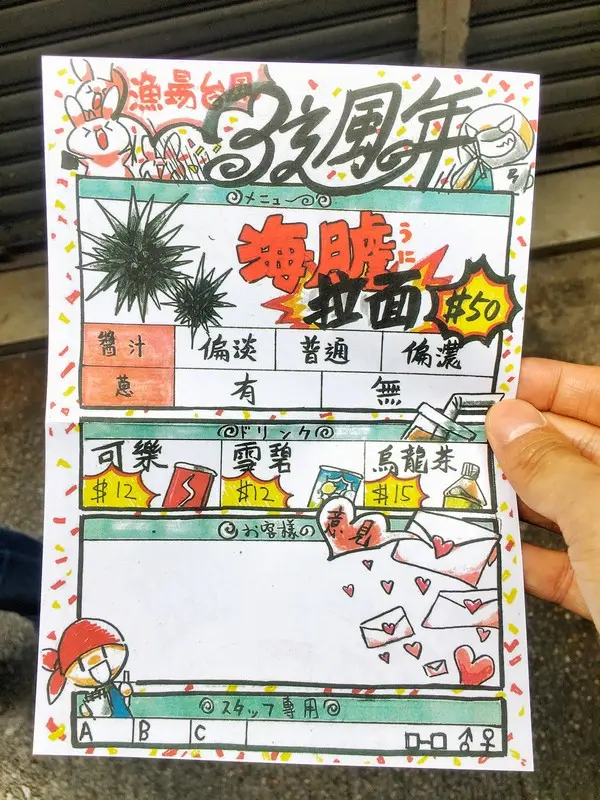 漁場台風
3玄風年
メニュー
海膽
うに
拉面
$50
醬汁 偏淡 普通 偏濃
蔥 有 無
ドリンク
可樂 雪碧 烏龍茶
$12 $12 $15
お客様の
意見
スタッフ専用
A B C
♂♀